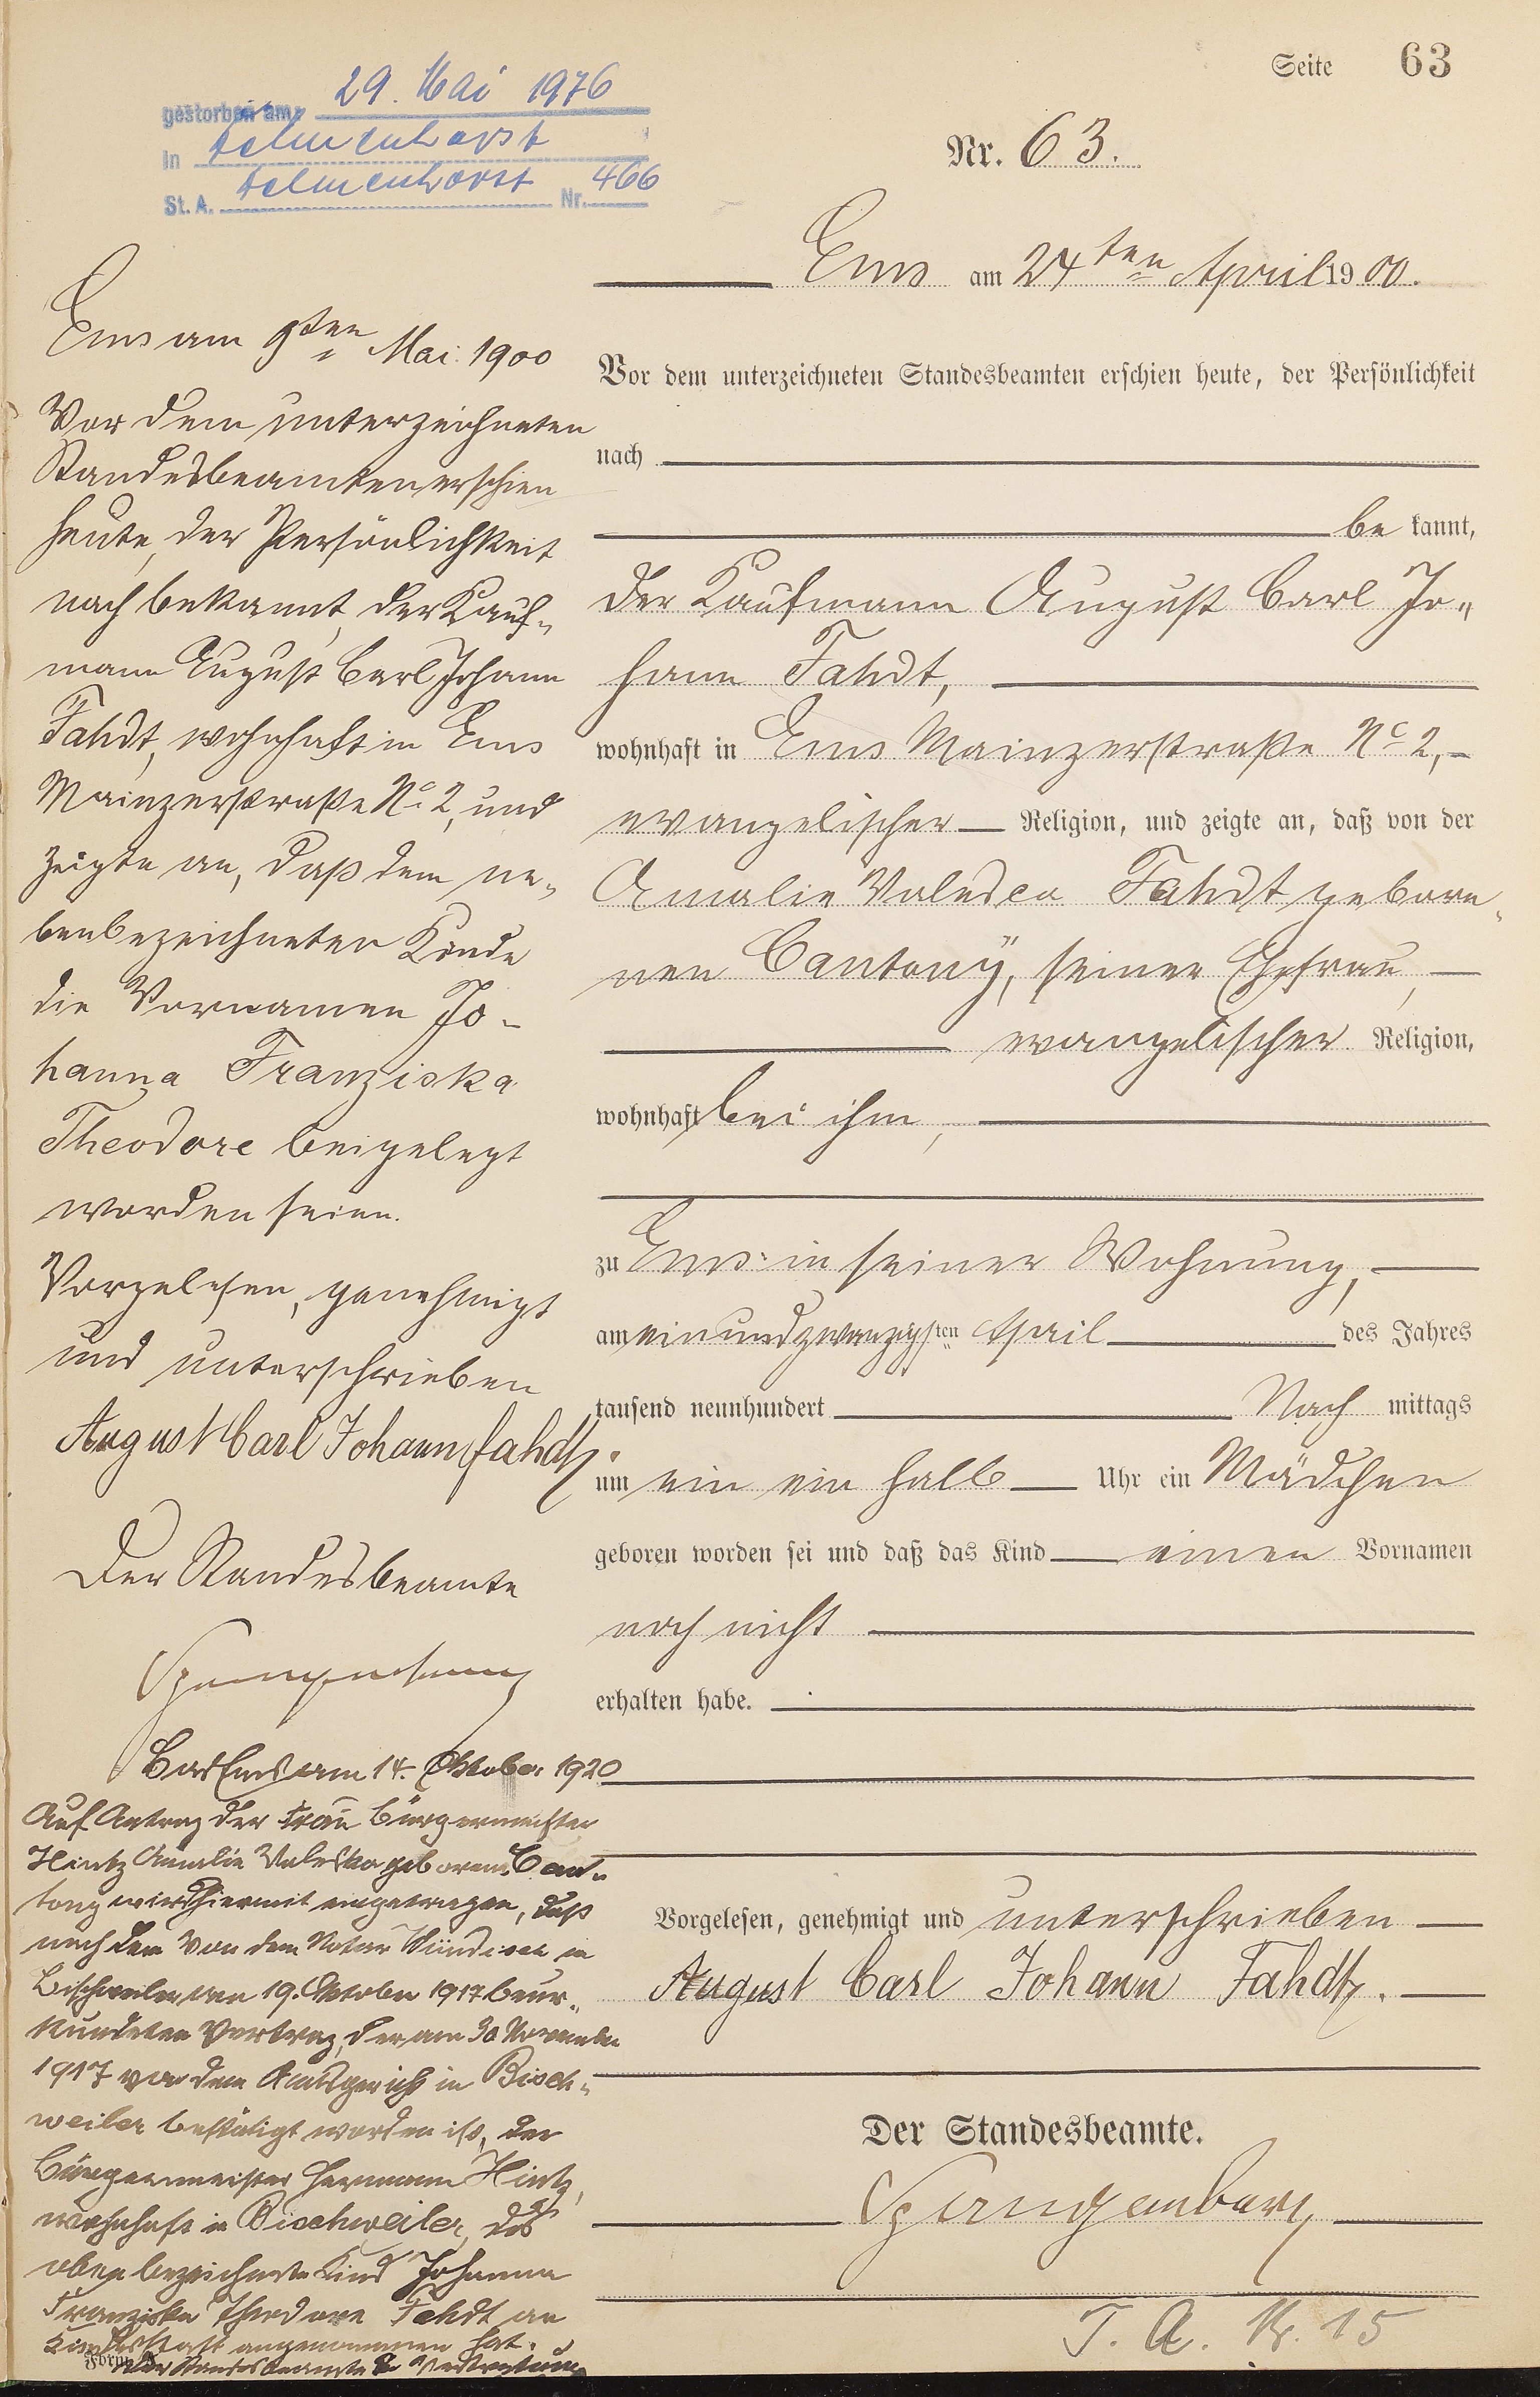 Seite 63
gestorben am 29. Mai 1976
in Delmenhorst
St. A. Delmenhorst Nr. 466
Nr. 63.
Ems am 24ten April 1900.
Vor dem unterzeichneten Standesbeamten erschien heute, der Persönlichkeit
nach
be kannt,
der Kaufmann August Carl Jo-
hann Fahdt,
wohnhaft in Ems Mainzerstraße No 2,
evangelischer Religion, und zeigte an, daß von der
Amalie Valesca Fahdt gebore-
nen Cantony, seiner Ehefrau,
evangelischer Religion,
wohnhaft bei ihm,
zu Ems in seiner Wohnung,
am einundzwanzigsten April des Jahres
tausend neunhundert Nach mittags
um ein ein halb Uhr ein Mädchen
geboren worden sei und daß das Kind einen Vornamen
noch nicht
erhalten habe.
Vorgelesen, genehmigt und unterschrieben
August Carl Johann Fahdt.
Der Standesbeamte.
Spangenberg
T. A. Nr. 15
Ems am 9ten Mai 1900
Vor dem unterzeichneten
Standesbeamten erschien
heute, der Persönlichkeit
nach bekannt, der Kauf-
mann August Carl Johann
Fahdt, wohnhaft in Ems
Mainzerstraße No 2, und
zeigte an, daß dem ne-
benbezeichneten Kinde
die Vornamen Jo-
hanna Franziska
Theodore beigelegt
worden seien.
Vorgelesen, genehmigt
und unterschrieben
August Carl Johann Fahdt
Der Standesbeamte
Spangenberg
Bad Ems am 14. Oktober 1920
Auf Antrag der Frau Bürgermeister
Hintz Amalie Valeska geborene Can-
tony wird hiermit eingetragen, daß
nach dem von dem Notar in
Bischweiler am 19. Oktober 1917 beur-
kundeten Vertrag, der am 30 November
1917 von dem Amtsgericht in Bisch-
weiler bestätigt worden ist, der
Bürgermeister Hermann Hintz,
wohnhaft in Bischweiler, das
oben bezeichnete Kind Johanna
Franziska Theodore Fahdt an
Kindesstatt angenommen hat.
Der Standesbeamte In Vertretung